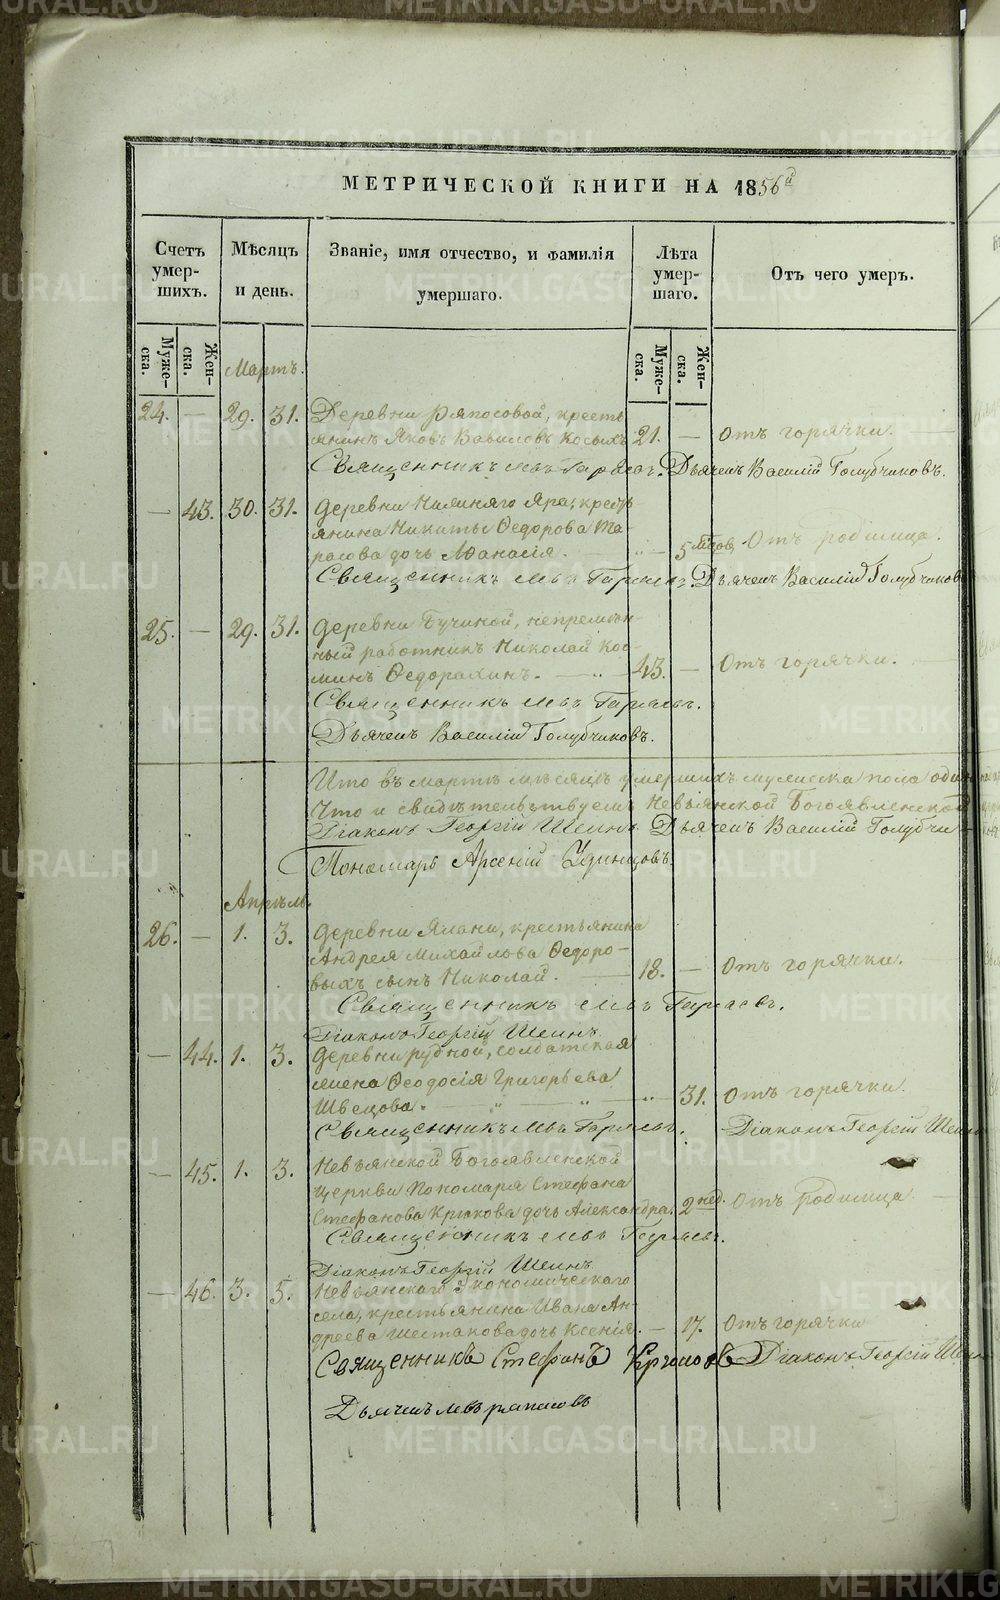 МЕТРИЧЕСКОЙ КНИГИ НА 1856й
Счетъ умер-шихъ.
Мѣсяцъ и день.
Званіе, имя отчество, и фамилія умершаго.
Лѣта умер-шаго.
Отъ чего умеръ.
Муже-ска.
Жен-ска.
Муже-ска.
Жен-ска.
Мартъ.
24. — 29. 31. Деревни Ряпосовой, кресть
янинъ Яковъ Вавиловъ Косыхъ 21. — Отъ горячки.
Священникъ Левъ Гаряевъ. Дьячекъ Василій Голубчиковъ.
— 43. 30. 31. Деревни Нижняго Яра, кресть
янина Никиты Ѳедорова Та-
расова дочь Аѳанасія. — 5 мѣсяцовъ Отъ родимца.
Священникъ Левъ Гаряевъ. Дьячекъ Василій Голубчиковъ
25. — 29. 31. Деревни Бучиной, непремѣн-
ный работникъ Николай Кос-
минъ Ѳедорахинъ. — 43. — Отъ горячки.
Священникъ Левъ Гаряевъ.
Дьячекъ Василій Голубчиковъ.
Что въ мартѣ мѣсяцѣ умершихъ мужеска пола
Что и свидѣтельствуемъ Невьянской Богоявленской
Діаконъ Георгій Шеинъ Дьячекъ Василій Голубчи-
Пономарь Арсеній Удинцовъ
Апрѣль.
26. — 1. 3. Деревни Ялани, крестьянина
Андрея Михайлова Ѳедоро-
выхъ сынъ Николай. — 18. — Отъ горячки.
Священникъ Левъ Гаряевъ.
Діаконъ Георгій Шеинъ
— 44. 1. 3. Деревни Рудной, солдатская
жена Ѳеодосія Григорьева
Швецова. — 31. Отъ горячки.
Священникъ Левъ Гаряевъ. Діаконъ Георгій Шеинъ
— 45. 1. 3. Невьянской Богоявленской
церкви Пономаря Стефана
Стефанова Крюкова дочь Александра. 2 нед. Отъ родимца.
Священникъ Левъ Гаряевъ.
Діаконъ Георгій Шеинъ
— 46. 3. 5. Невьянскаго Экономическаго
села, крестьянина Ивана Ан-
дреева Шестакова дочь Ксенія. — 17. Отъ горячки
Священникъ Стефанъ Діаконъ Георгій Шеинъ
Дьячекъ Левъ Ряписовъ
METRIKI.GASO-URAL.RU